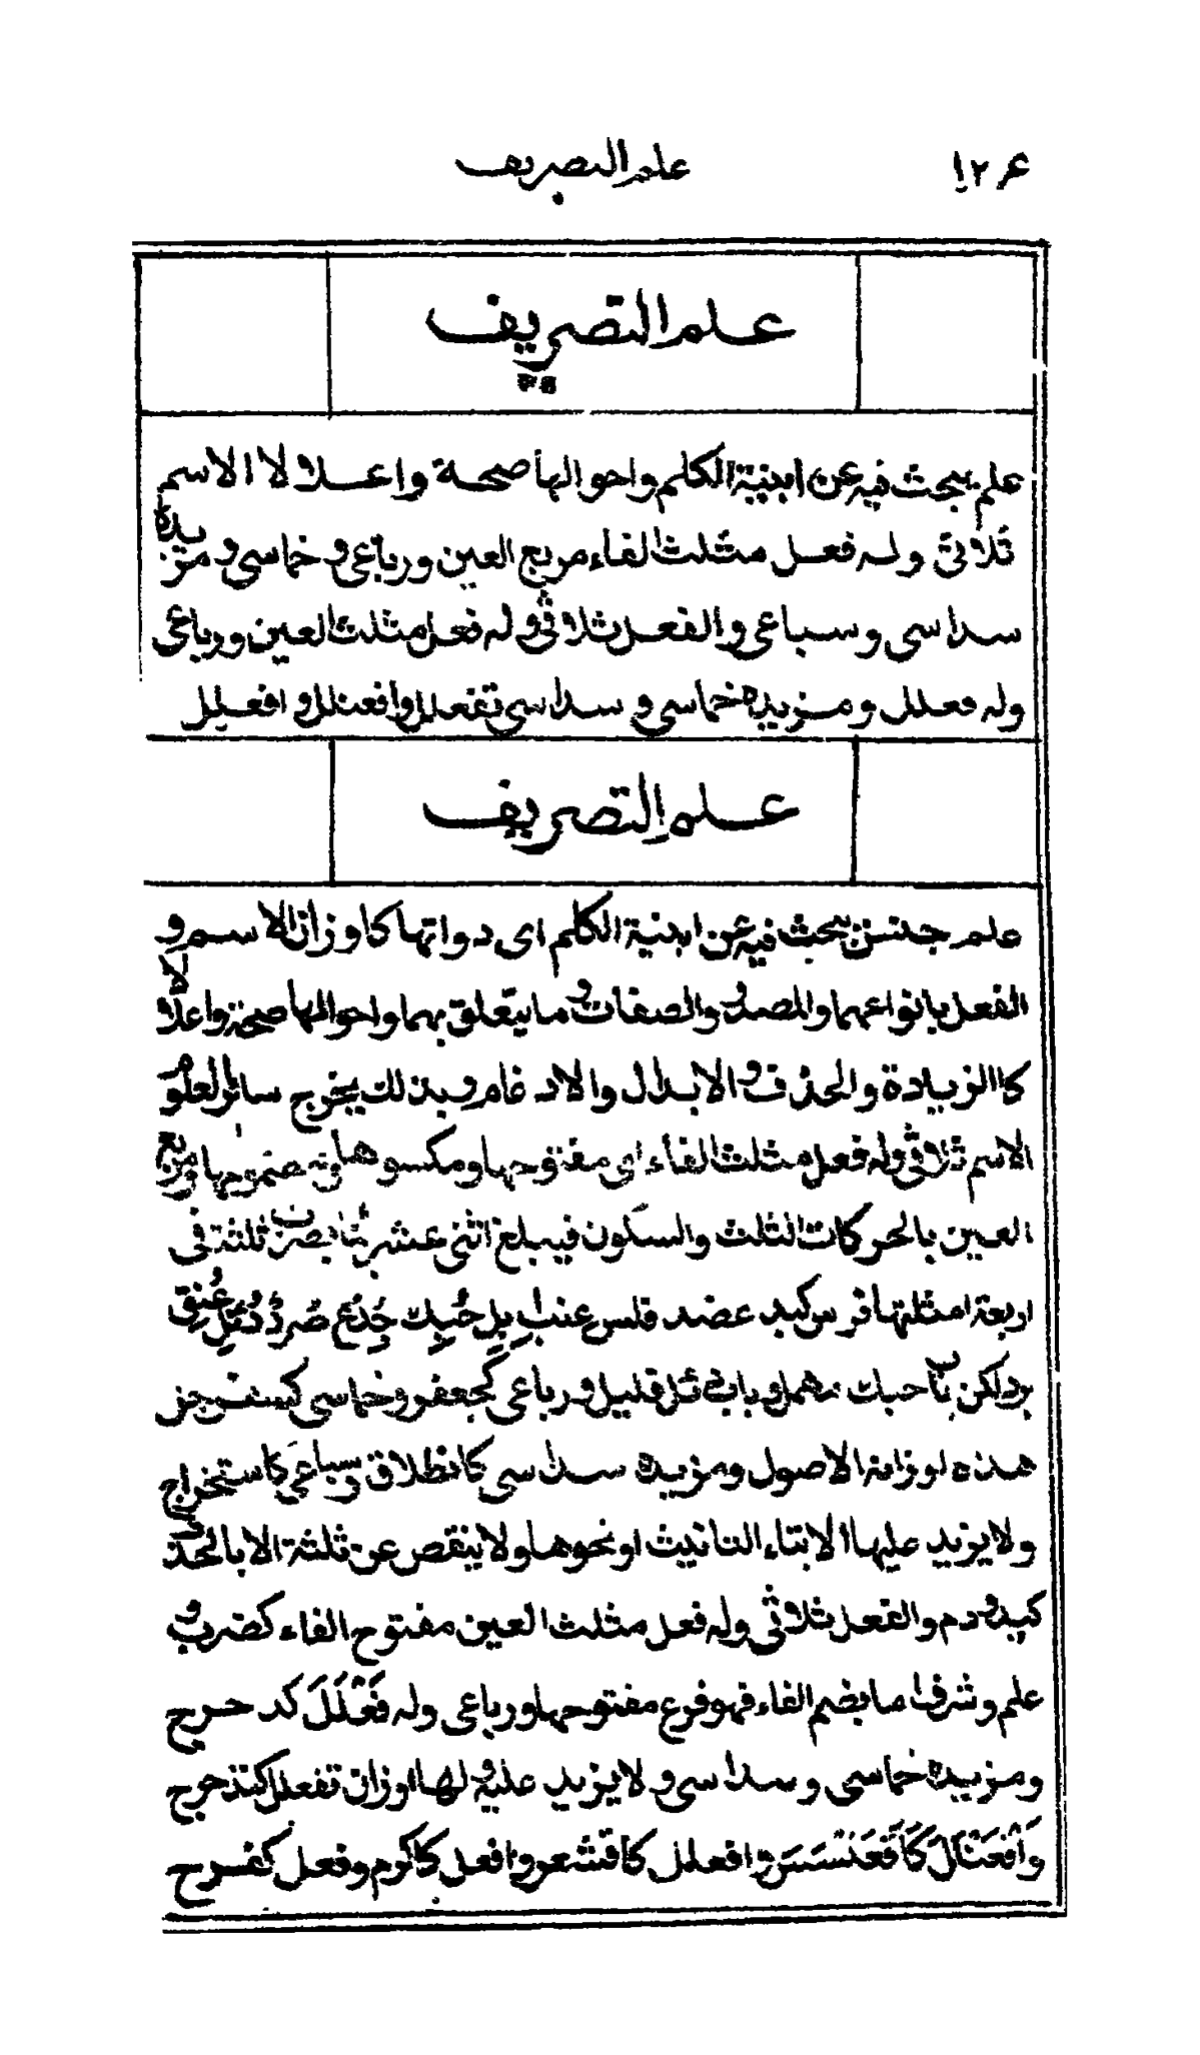 علم التصريف ١٢٤
علم التصريف
علم يبحث فيه عن ابنية الكلم واحوالها صحة واعلالا الاسم
ثلاثى وله فعل مثلث الفاء مربع العين ورباعى وخماسى ومزيده
سداسى وسباعى والفعل ثلاثى وله فعل مثلث العين ورباعى
وله فعلل ومزيده خماسى وسداسى تفعلل وافعنلل وافعلل
علم التصريف
علم جنس يبحث فيه عن ابنية الكلم اى ذواتها كاوزان الاسم و
الفعل بانواعهما والمصدر والصفات وما يتعلق بهما واحوالها صحة واعلالا
كالزيادة والحذف والابدال والادغام وبذلك يخرج سائر العلوم
الاسم ثلاثى وله فعل مثلث الفاء اى مفتوحها ومكسورها ومضمومها ومربع
العين بالحركات الثلث والسكون فيبلغ اثنى عشر بناء بضرب ثلثة فى
اربعة امثلتها فرس كبد عضد فلس عنب ابل حبك جذع صرد دئل عنق
برد لكن باب حبك مهمل وباب دئل قليل ورباعى كجعفر وخماسى كسفرجل
هذه اوزانه الاصول ومزيده سداسى كانطلاق وسباعى كاستخراج
ولا يزيد عليها الا بتاء التانيث او نحوها ولا ينقص عن ثلثة الا بالحذف
كيد ودم والفعل ثلاثى وله فعل مثلث العين مفتوح الفاء كضرب و
علم وشرف اما بضم الفاء فهو فرع مفتوحها ورباعى وله فَعْلَلَ كدحرج
ومزيده خماسى وسداسى ولا يزيد عليه ولها اوزان تفعلل كتدحرج
وَافْعَنْلَلَ كَاقْعَنْسَسَ وافعلل كاقشعر وافعل كاكرم وفعل كفرح